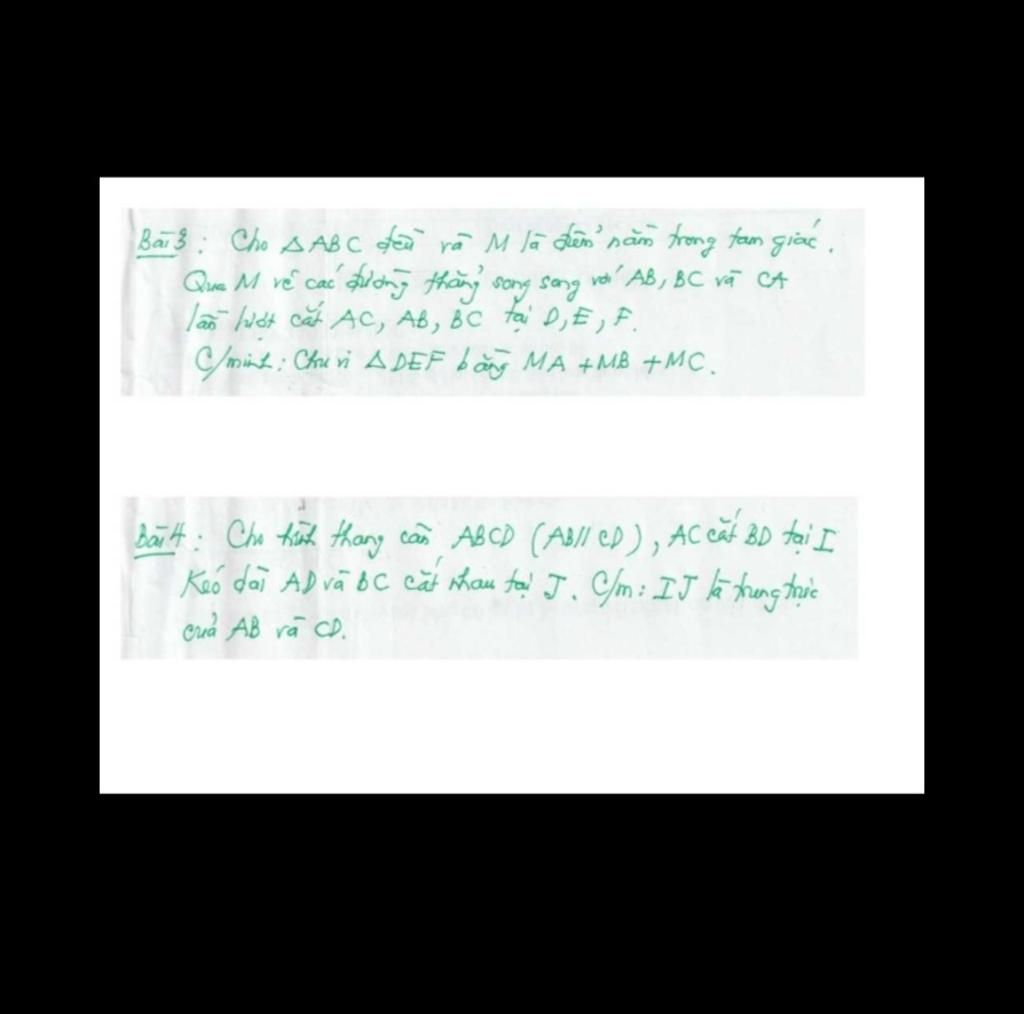 Bài 3 : Cho △ABC đều và M là điểm nằm trong tam giác.
Qua M vẽ các đường thẳng song song với AB, BC và CA
lần lượt cắt AC, AB, BC tại D, E, F.
C/minh : Chu vi △DEF bằng MA + MB + MC.
Bài 4 : Cho hình thang cân ABCD (AB // CD), AC cắt BD tại I
Kéo dài AD và BC cắt nhau tại J. C/m : IJ là trung trực
của AB và CD.